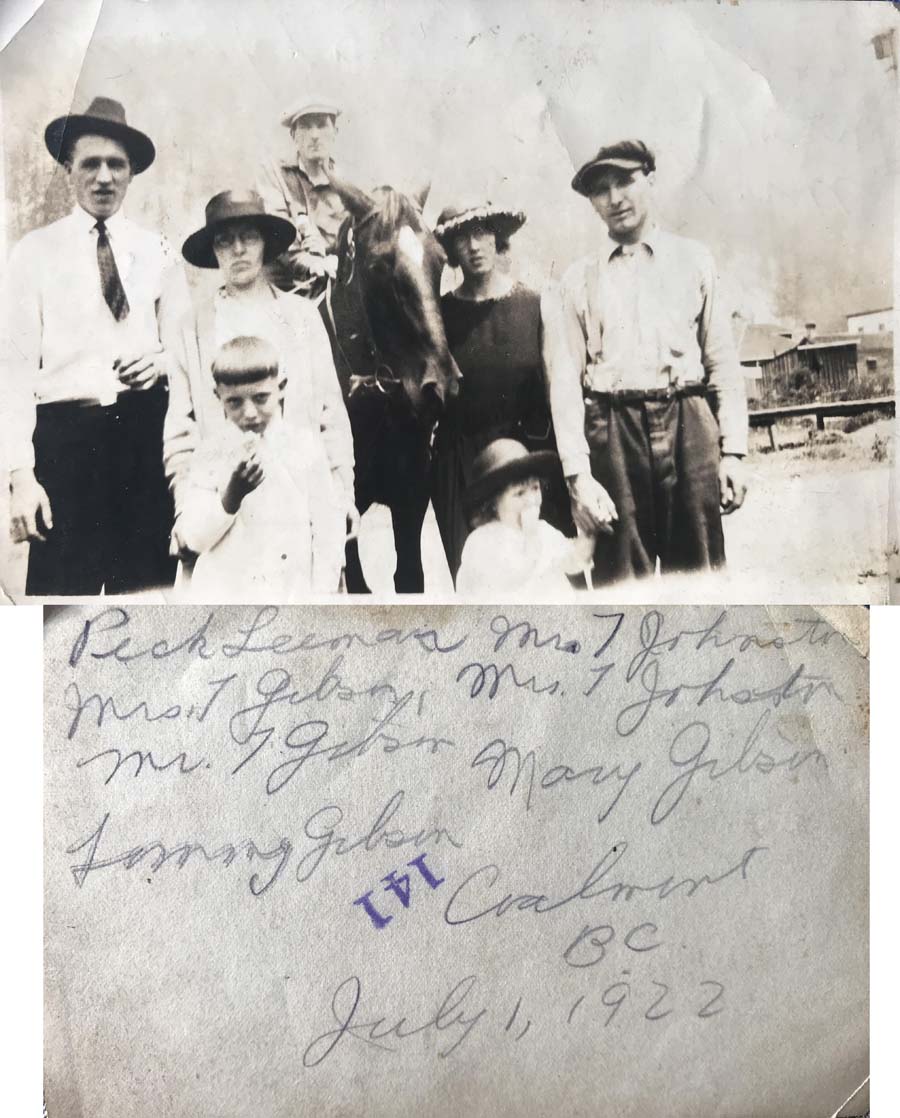 Peck Leeman Mrs T Johnston
Mrs. T Gibson, Mrs. T Johnston
Mr. T. Gibson Mary Gibson
Tommy Gibson
141
Coalmont
BC.
July 1, 1922